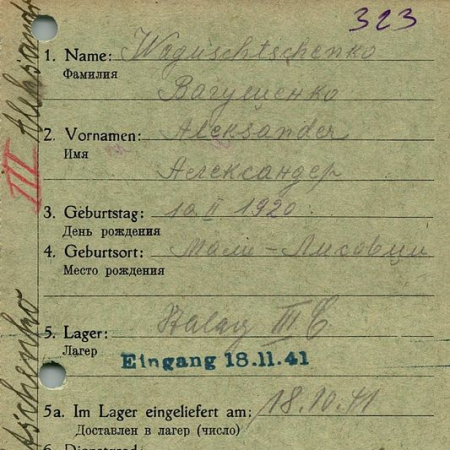 323
1. Name: Waguschtschenko
Фамилия
Вагущенко
2. Vornamen: Aleksander
Имя
Александер
3. Geburtstag: 10 II 1920.
День рождения
4. Geburtsort: Мали-Лисовци
Место рождения
5. Lager: Stalag III C
Лагер
Eingang 18.11.41
5a. Im Lager eingeliefert am: 18.10.41
Доставлен в лагер (число)
III